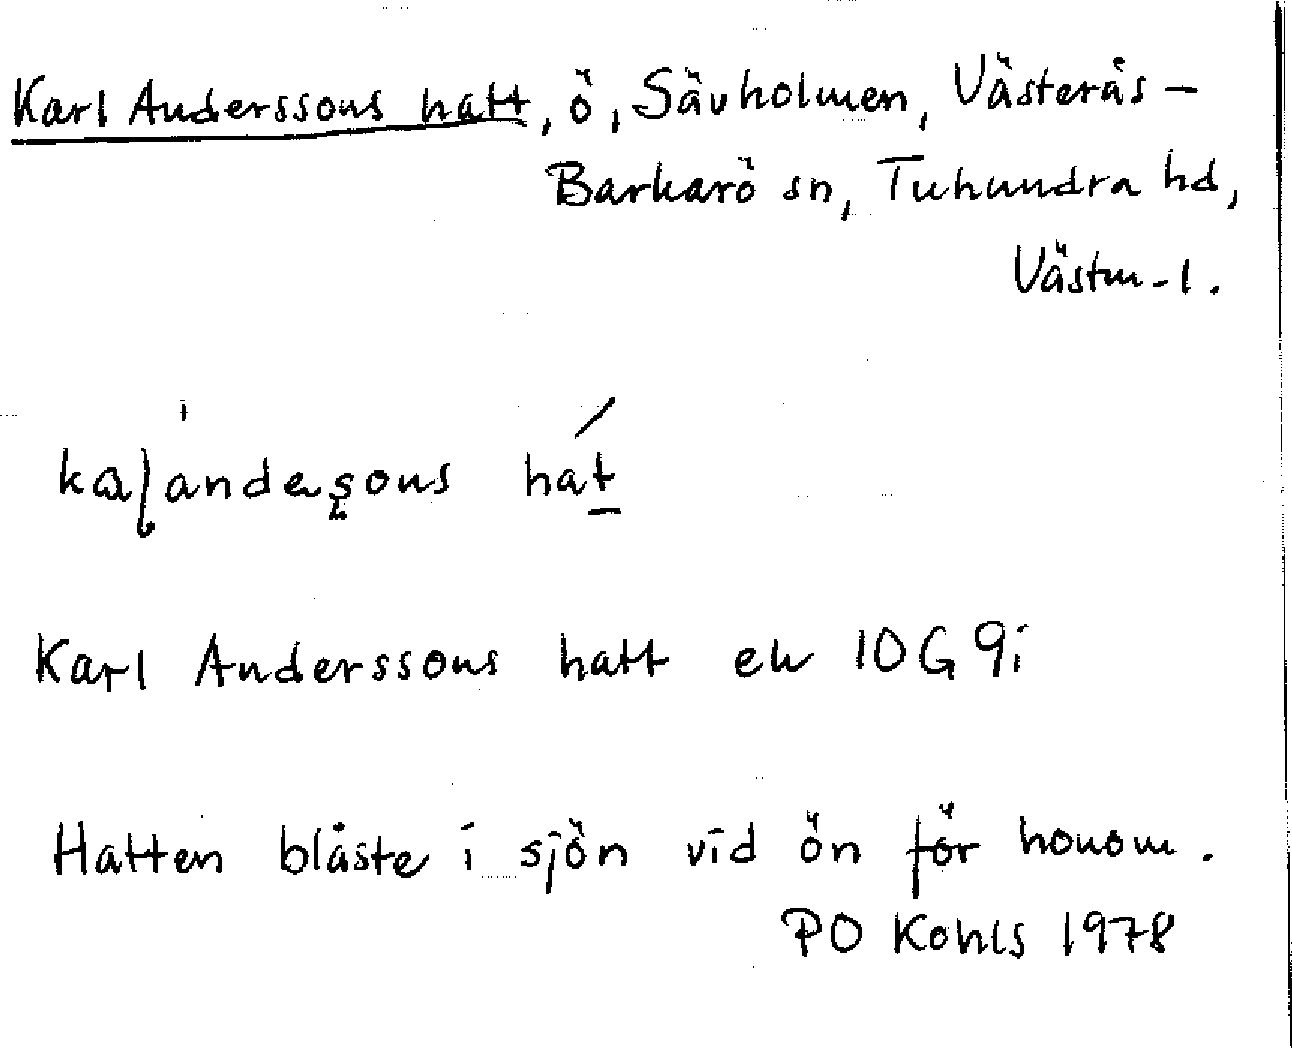 Karl Anderssons hatt, ö, Sävholmen, Västerås-
Barkarö sn, Tuhundra hd,
Västm-l.
hat
Karl Anderssons hatt ek 10G 9i
Hatten blåste i sjön vid ön för honom.
PO Kohls 1978